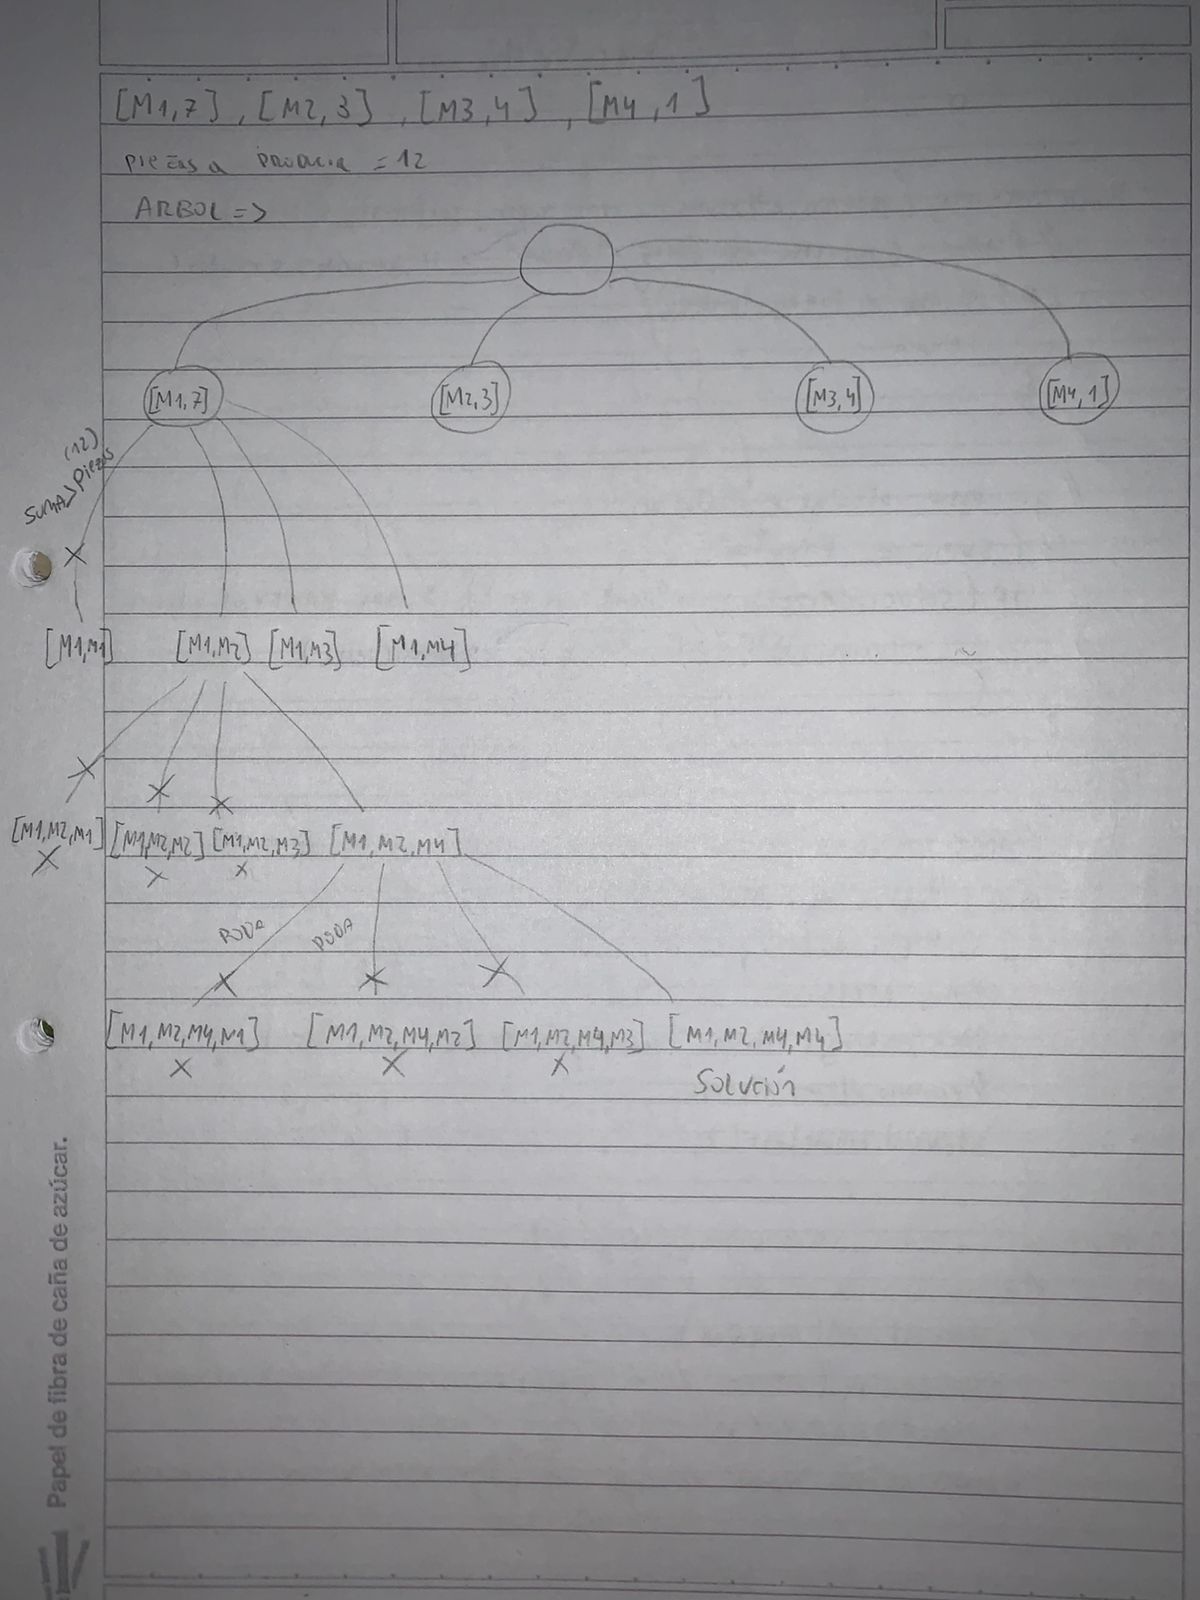 [M1,7] , [M2,3] , [M3,4] , [M4,1]
piezas a producir = 12
ARBOL =>
[M1,7] [M2,3] [M3,4] [M4,1]
SUMA > piezas (12)
[M1,M1] [M1,M2] [M1,M3] [M1,M4]
[M1,M2,M1] [M1,M2,M2] [M1,M2,M3] [M1,M2,M4]
X X X
PODA PODA
[M1,M2,M4,M1] [M1,M2,M4,M2] [M1,M2,M4,M3] [M1,M2,M4,M4]
X X X SOLUCIÓN
Papel de fibra de caña de azúcar.